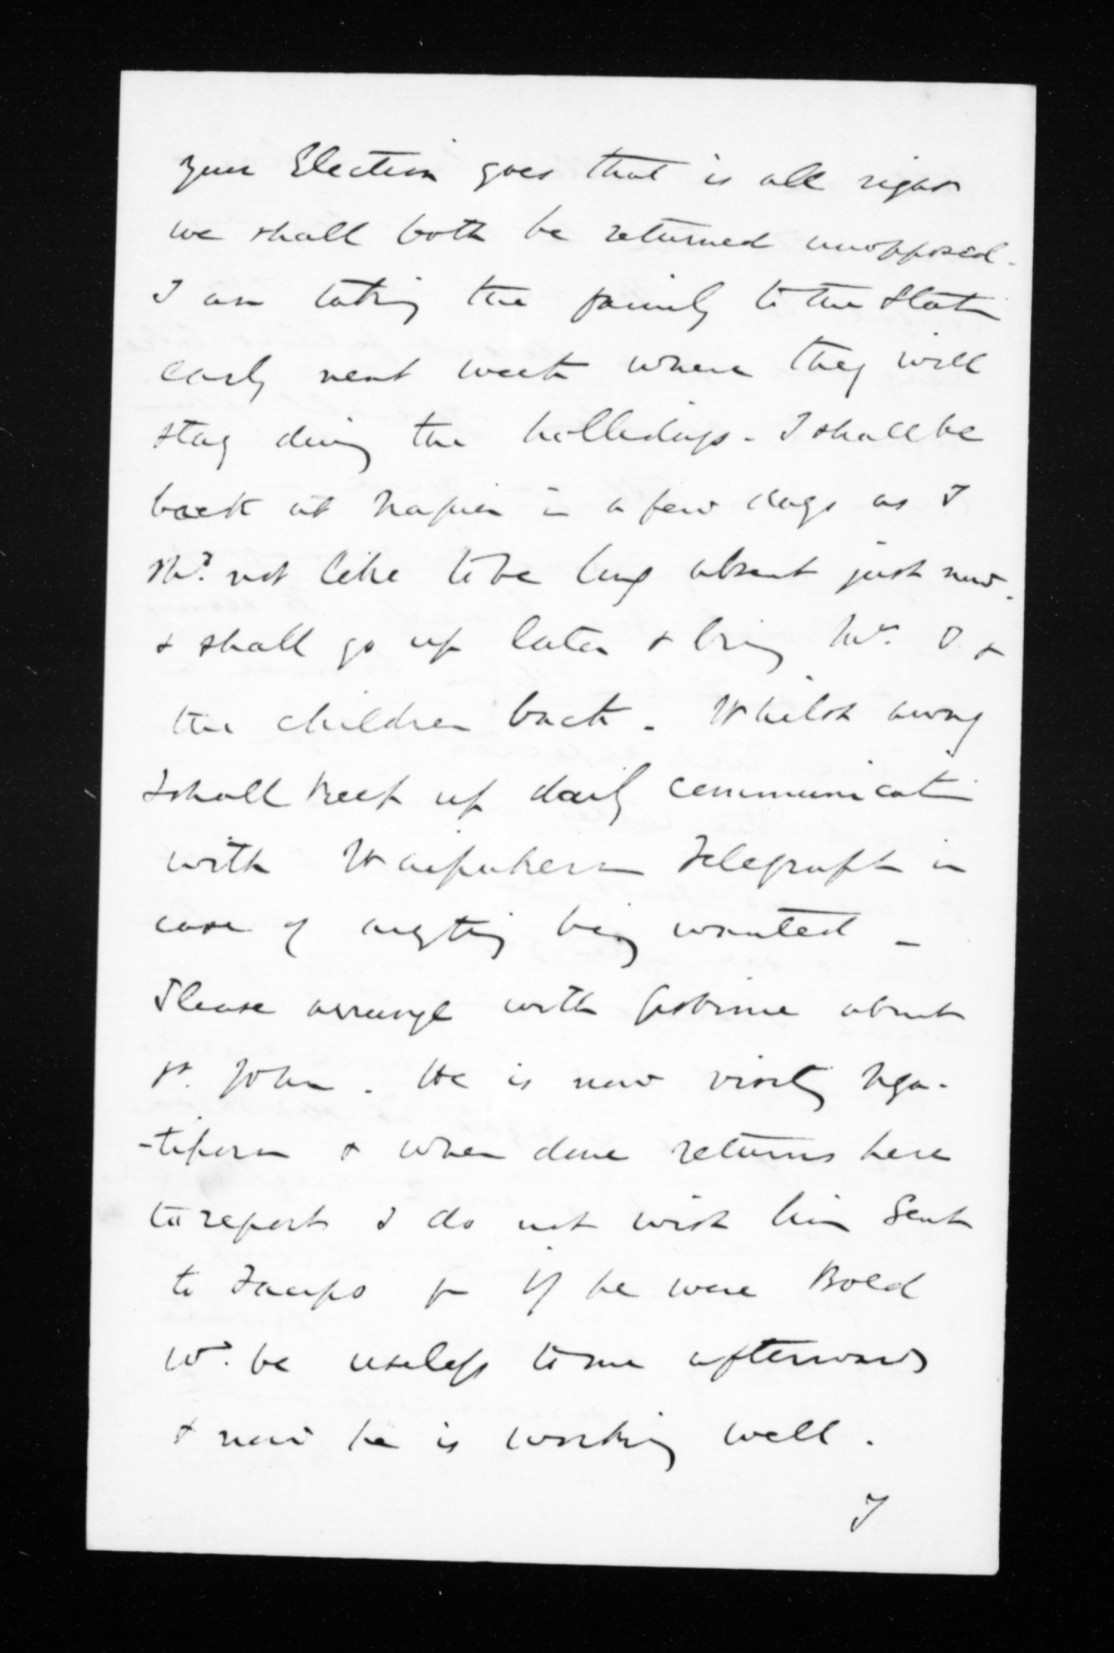 your Election goes that is all right
we shall both be returned unopposed.
I am taking the family to the Station
early next week where they will
stay during the hollidays - I shall be
back at Napier in a few days as I
shd. not like to be long absent just now.
& shall go up later & bring Mrs. O. &
the children back. Whilst away
I shall keep up daily communication
with Waipukurau Telegraph in
case of anything being wanted _
Please arrange with Gisborne about
St. John. He is now visiting Nga-
-tiporou & when done returns here
to report I do not wish him Sent
to Taupo for if he were Bold
wd. be useless to me afterwards
& now he is working well.
I